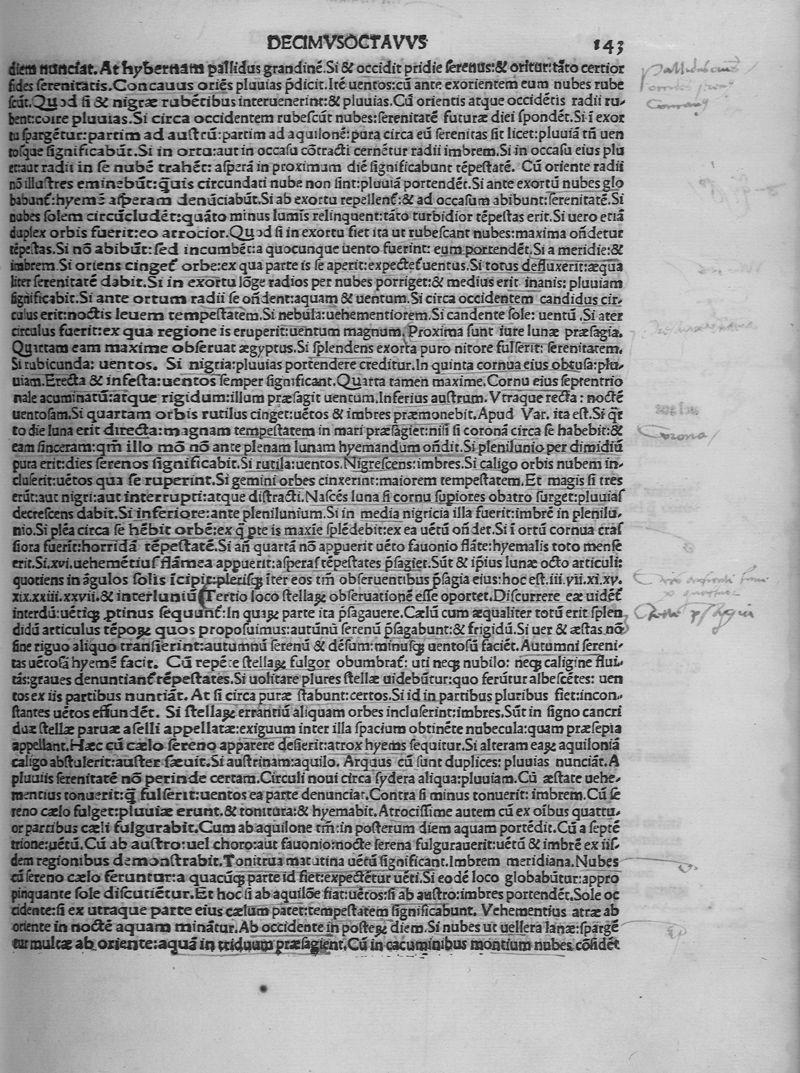 DECIMVSOCTAVVS 143
diem nunciat. At hybernam pallidus grandinē. Si & occidit pridie serenus: & oritur: tāto certior
fides serenitatis. Concauus oriēs pluuias p̄dicit. Itē uentos: cū ante exorientem eum nubes rube
scūt. Quod si & nigræ rubētibus interuenerint: & pluuias. Cū orientis atque occidētis radii ru-
bent: coire pluuias. Si circa occidentem rubescūt nubes: serenitatē futuræ diei spondēt. Si ī exor
tu spargētur: partim ad austrū: partim ad aquilonē: pura circa eū serenitas sit licet: pluuiā tn̄ uen
tosque significabūt. Si in ortu: aut in occasu cōtracti cernētur radii imbrem. Si in occasu eius plu
et: aut radii in se nubē trahēt: asperā in proximum diē significabunt tēpestatē. Cū oriente radii
nō illustres eminebūt: q̄uis circundati nube non sint: pluuiā portendēt. Si ante exortū nubes glo
babunt̄: hyemē asperam denūciabūt. Si ab exortu repellent̄: & ad occasum abibunt: serenitatē. Si
nubes solem circūcludēt: quāto minus lumīs relinquent: tāto turbidior tēpestas erit. Si uero etiā
duplex orbis fuerit: eo atrocior. Quod si in exortu fiet ita ut rubescant nubes: maxima ondētur
tēpestas. Si nō abibūt: sed incumbēt: a quocunque uento fuerint: eum portendēt. Si a meridie: &
imbrem. Si oriens cinget̄ orbe: ex qua parte is se aperit: expectet̄ uentus. Si totus defluxerit: æqua
liter serenitatē dabit. Si in exortu lōge radios per nubes porriget: & medius erit inanis: pluuiam
significabit. Si ante ortum radii se on̄dent: aquam & uentum. Si circa occidentem candidus cir-
culus erit: noctis leuem tempestatem. Si nebula: uehementiorem. Si candente sole: uentū. Si ater
circulus fuerit: ex qua regione is eruperit: uentum magnum. Proxima sunt iure lunæ præsagia.
Quartam eam maxime obseruat ægyptus. Si splendens exorta puro nitore fulserit: serenitatem.
Si rubicunda: uentos. Si nigria: pluuias portendere creditur. In quinta cornua eius obtusa: plu-
uiam. Erecta & infesta: uentos semper significant. Quarta tamen maxime. Cornu eius septentrio
nale acuminatū: atque rigidum: illum præsagit uentum. Inferius austrum. Vtraque recta: noctē
uentosam. Si quartam orbis rutilus cinget: uētos & imbres præmonebit. Apud Var. ita est. Si q̄r
to die luna erit directa: magnam tempestatem in mari præsagiet: nisi si coronā circa se habebit: &
eam sinceram: qm̄ illo mō nō ante plenam lunam hyemandum on̄dit. Si plenilunio per dimidiū
pura erit: dies serenos significabit. Si rutila: uentos. Nigrescens: imbres. Si caligo orbis nubem in-
cluserit: uētos qua se ruperint. Si gemini orbes cinxerint: maiorem tempestatem. Et magis si tres
erūt: aut nigri: aut interrupti: atque distracti. Nascēs luna si cornu supiores obatro surget: pluuias
decrescens dabit. Si inferiore: ante plenilunium. Si in media nigricia illa fuerit: imbrē in plenilu-
nio. Si plēa circa se hēbit orbē: ex q̄ pte is maxīe splēdebit: ex ea uētū on̄det. Si ī ortū cornua cras
siora fuerīt: horridā tēpestatē. Si an̄ quartā nō appuerit uēto fauonio flāte: hyemalis toto mense
erit. Si .xvi. uehemētius flāmea appuerit: asperas tēpestates p̄sagiet. Sūt & ipius lunæ octo articuli:
quotiens in āgulos solis īcipit: plerisq; īter eos tm̄ obseruentibus p̄sagia eius: hoc est .iii. vii. xi. xv.
xix. xxiii. xxvii. & interluniū. Tertio loco stellaꝝ obseruationē esse oportet. Discurrere eæ uidēt̄
interdū: uētiq; ꝓtinus sequunt̄: In quaꝝ parte ita p̄sagauere. Cælū cum æqualiter totū erit splen
didū articulus tēpoꝝ quos proposuimus: autūnū serenū p̄sagabunt: & frigidū. Si uer & æstas nō
sine riguo aliquo transierint: autumnū serenū & dēsum: minusq; uentosū faciēt. Autumni sereni-
tas uētosā hyemē facit. Cū repēte stellaꝝ fulgor obumbrat̄: uti neq; nubilo: neq; caligine flui-
tās: graues denuntiant̄ tēpestates. Si uolitare plures stellæ uidebūtur: quo ferūtur albescētes: uen
tos ex iis partibus nuntiāt. At si circa puræ stabunt: certos. Si id in partibus pluribus fiet: incon-
stantes uētos effundēt. Si stellaꝝ errantiū aliquam orbes incluserint: imbres. Sūt in signo cancri
duæ stellæ paruæ aselli appellatæ: exiguum inter illa spacium obtinēte nubecula: quam præsepia
appellant. Hæc cū cælo sereno apparere desierit: atrox hyems sequitur. Si alteram eaꝝ aquiloniā
caligo abstulerit: auster sæuit. Si austrinam: aquilo. Arquus cū sunt duplices: pluuias nunciāt. A
pluuiis serenitatē nō perinde certam. Circuli noui circa sydera aliqua: pluuiam. Cū æstate uehe-
mentius tonuerit: q̄ fulserit: uentos ea parte denunciat. Contra si minus tonuerit: imbrem. Cū se
reno cælo fulget: pluuiæ erunt. & tonitura: & hyemabit. Atrocissime autem cū ex oībus quattu-
or partibus cæli fulgurabit. Cum ab aquilone tm̄: in posterum diem aquam portēdit. Cū a septē
trione: uētū. Cū ab austro: uel choro: aut fauonio: nocte serena fulgurauerit: uētū & imbrē ex iis-
dem regionibus demonstrabit. Tonitrua matutina uētū significant. Imbrem meridiana. Nubes
cū sereno cælo feruntur: a quacūq; parte id fiet: expectētur uēti. Si eodē loco globabūtur: appro
pinquante sole discutiētur. Et hoc si ab aquilōe fiat: uētos: si ab austro: imbres portendēt. Sole oc
cidente: si ex utraque parte eius cælum patet: tempestatem significabunt. Vehementius atræ ab
oriente in noctē aquam minātur. Ab occidente in posteꝝ diem. Si nubes ut uellera lanæ: spargē
tur multæ ab oriente: aquā in triduum præsagient. Cū in cacuminibus montium nubes cōsidēt
Corona